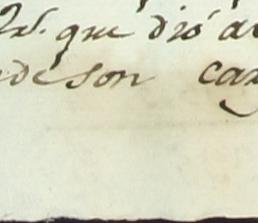 que dió a
de son ca